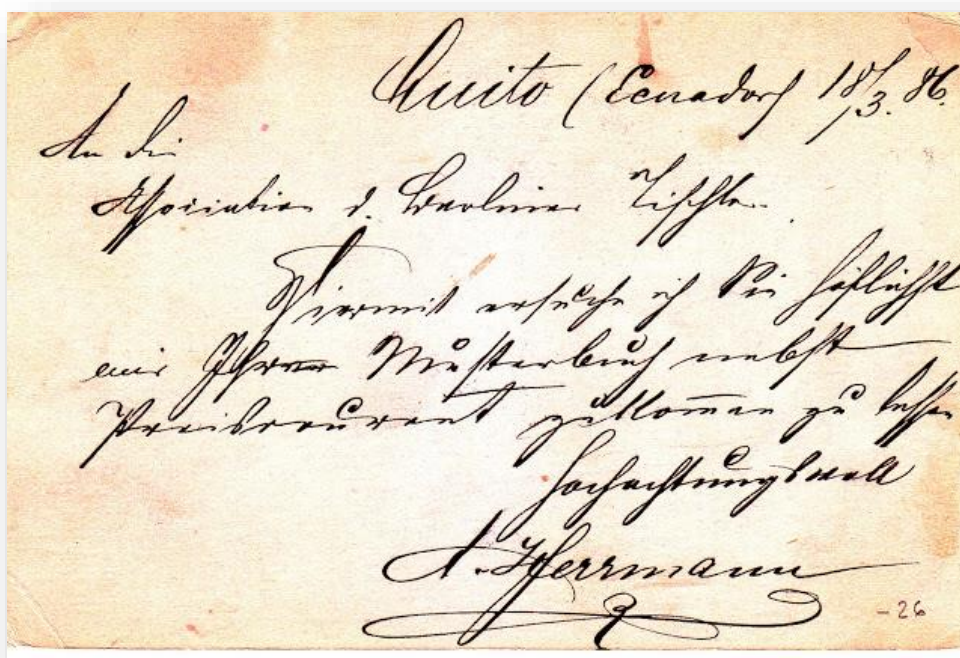 Quito (Ecuador) 18/3. 86.
An die
Association d. Berliner Tischler.
Hiermit ersuche ich Sie höflichst
mir Ihren Musterbuch nebst
Preiscourant zukommen zu lassen
Hochachtungsvoll
A. Herrmann
-26